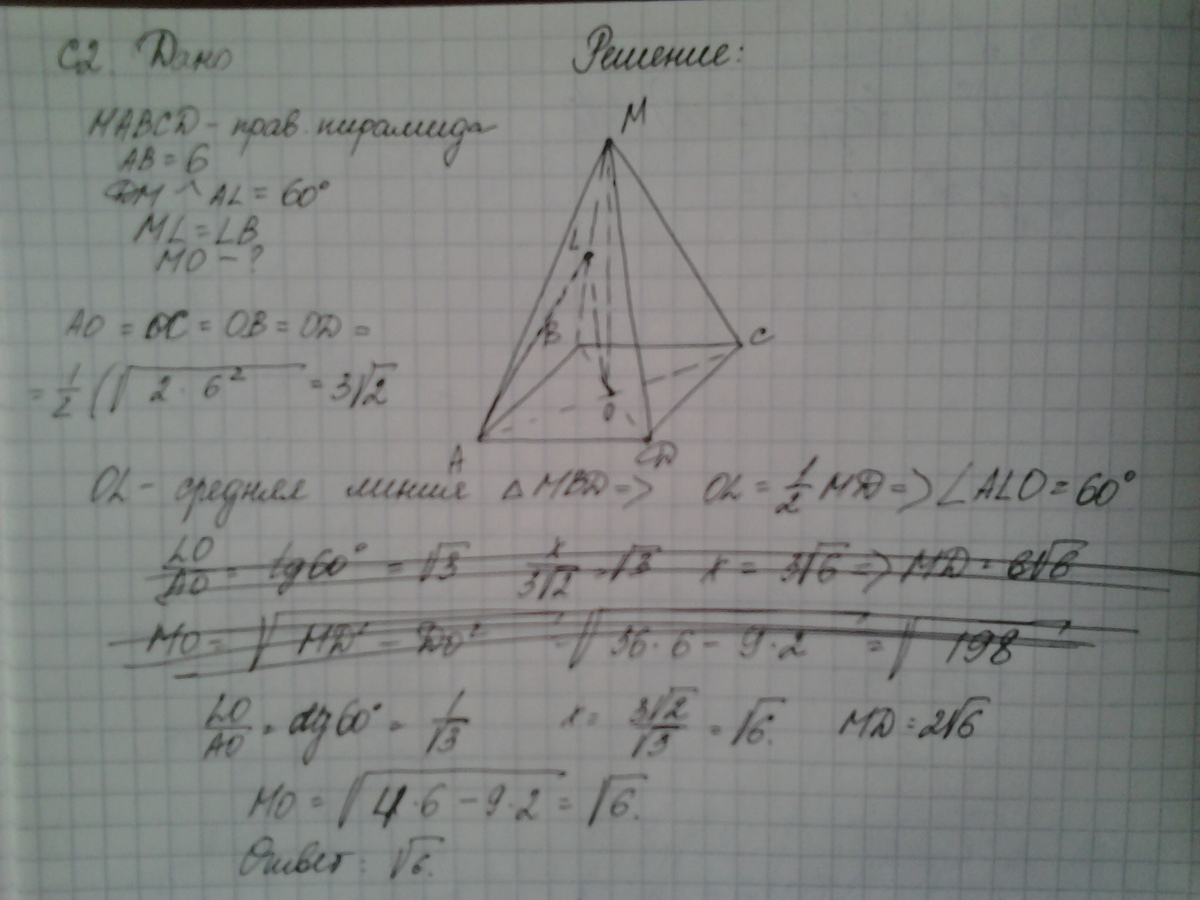 С2. Дано
Решение:
MABCD - прав. пирамида
AB = 6
DM ^ AL = 60°
ML = LB
MO - ?
AO = OC = OB = OD =
= 1/2 (√2·6² = 3√2
M
L
B
C
O
A
D
OL - средняя линия △ MBD => OL = 1/2 MD => ∠ALO = 60°
LO/AO = tg60° = √3 x/3√2 = √3 x = 3√6 => MD = 6√6
MO = √MD² - DO² = √36·6 - 9·2 = √198
LO/AO = ctg60° = 1/√3 x = 3√2/√3 = √6. MD = 2√6
MO = √4·6 - 9·2 = √6.
Ответ: √6.